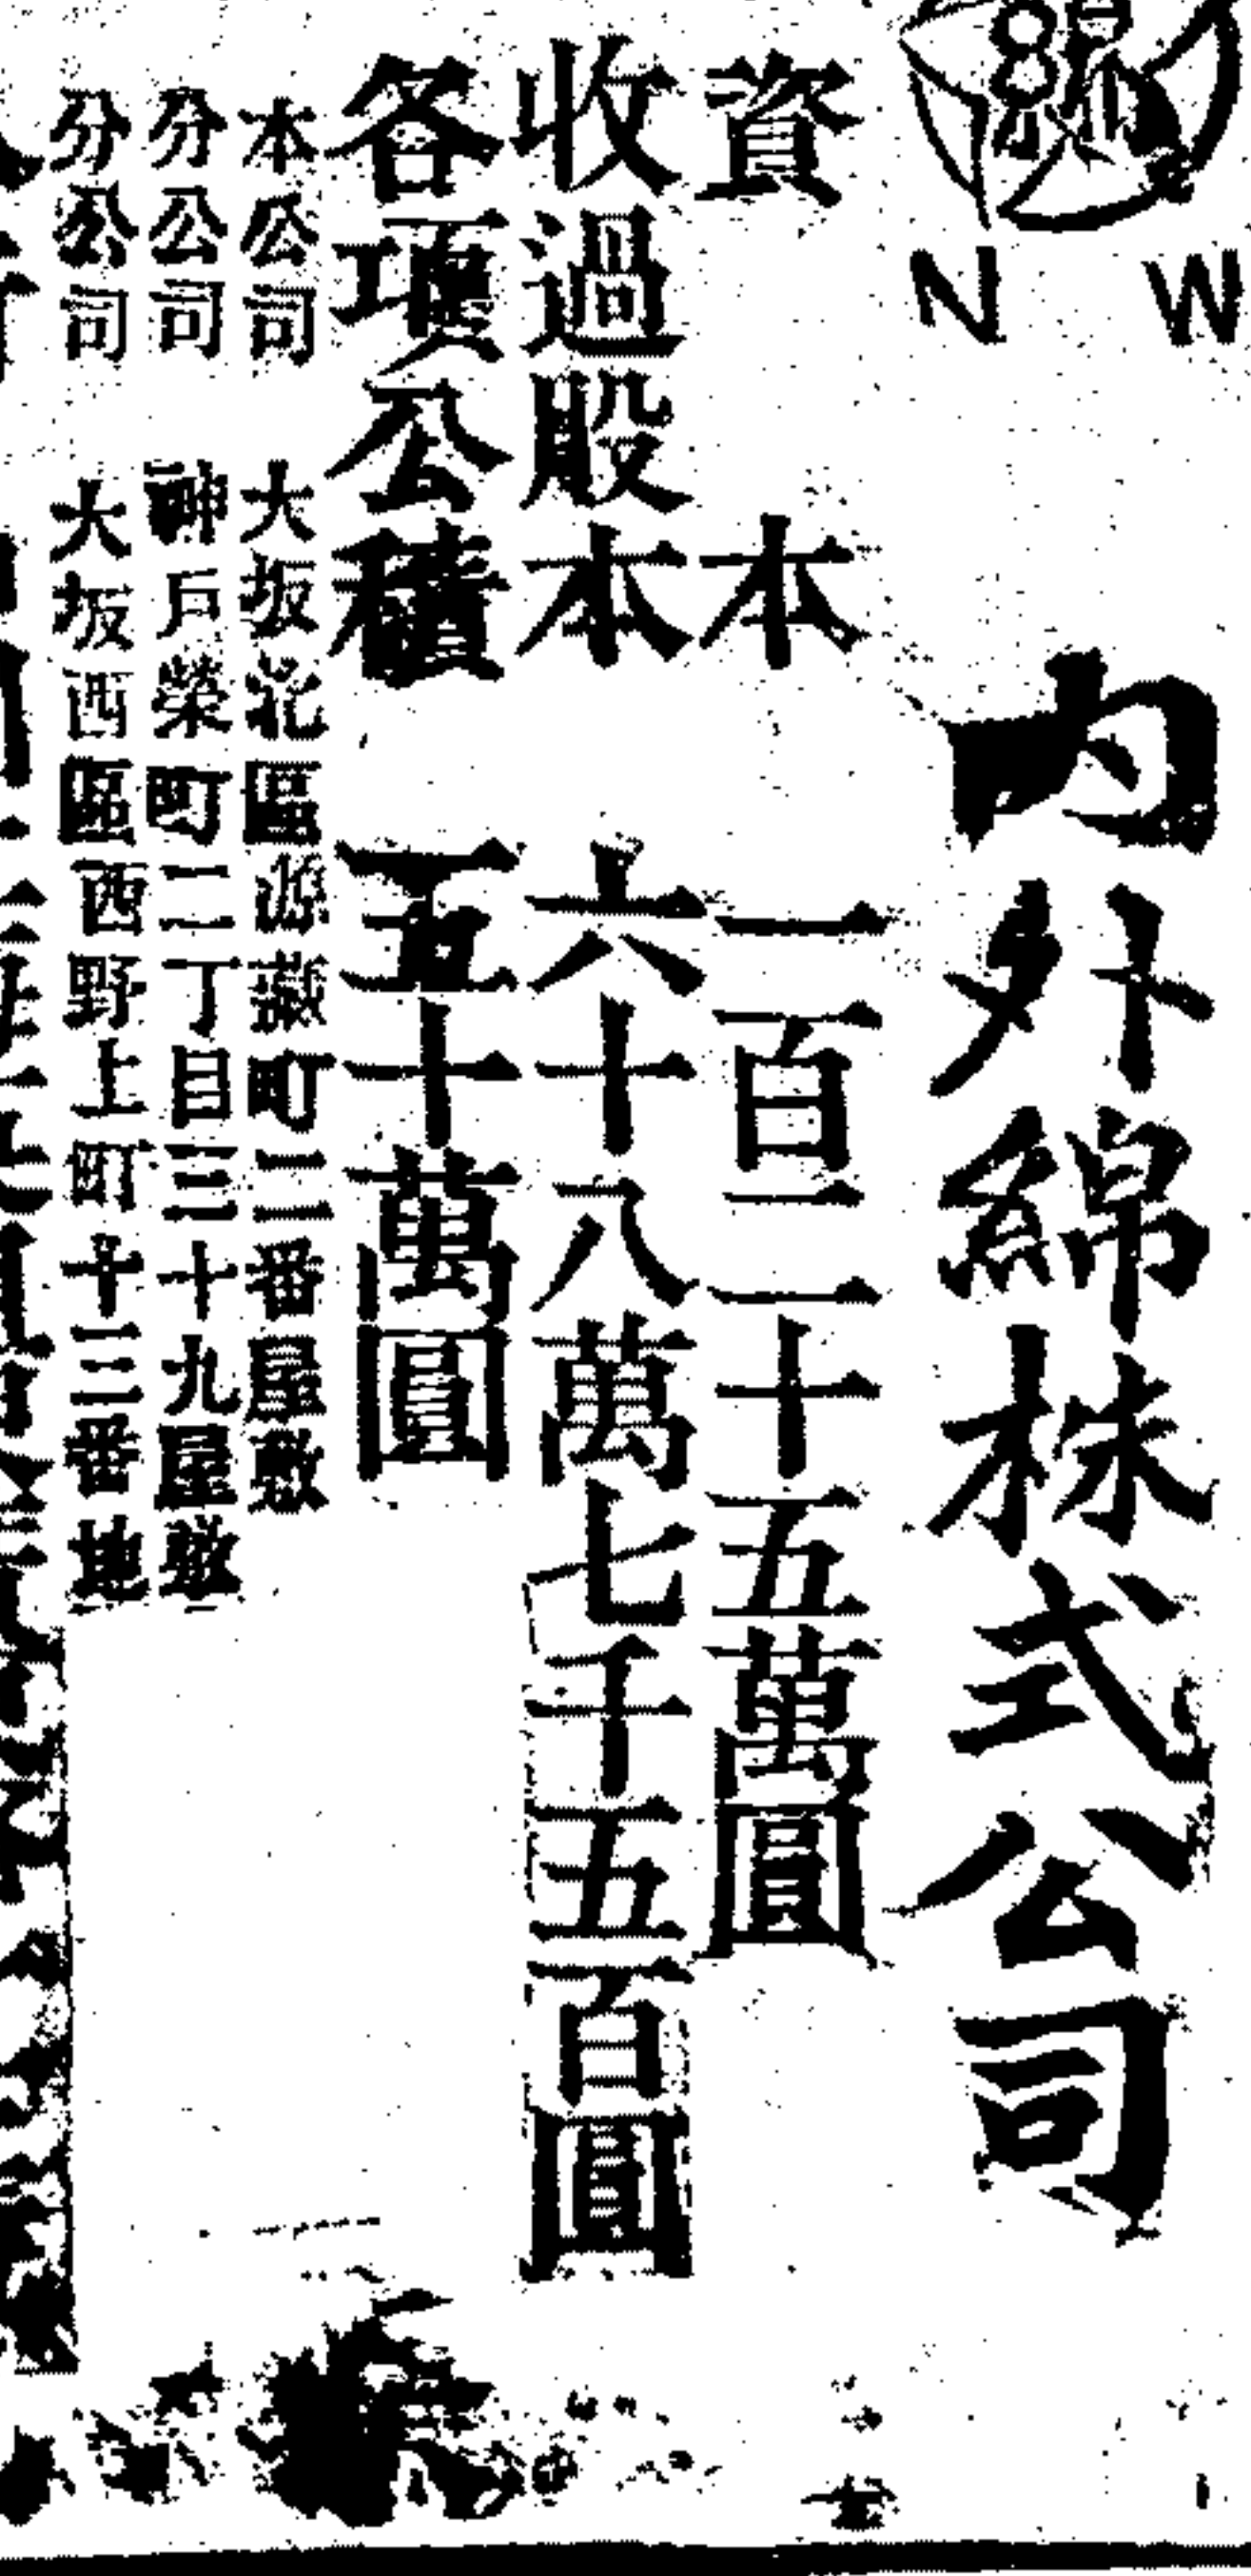 N W
内外綿株式公司
資本 一百二十五萬圓
收過股本 六十八萬七千五百圓
各項公積 五十萬圓
本公司 大坂北區源蔵町二番屋敷
分公司 神戶榮町二丁目三十九屋敷
分公司 大坂西區西野上町十三番地